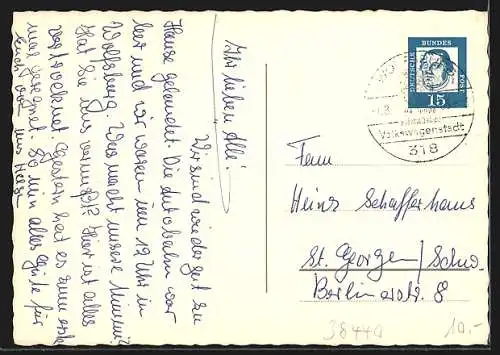 Ihr lieben Alle!
Wir sind wieder gut zu
Hause gelandet. Die Autobahn war
leer und wir waren um 19 Uhr in
Wolfsburg. Was macht unsere Mimmi?
Hat sie uns vermißt? Hier ist alles
vertrocknet. Gestern hat es zum ersten
mal geregnet. So nun alles Gute für
Euch von uns
DEUTSCHE
BUNDES
POST
15
Volkswagenstadt
318
Fam
Heinz Schafferhans
St. Georgen/Schw.
Berlinerstr. 8
38440
10,-